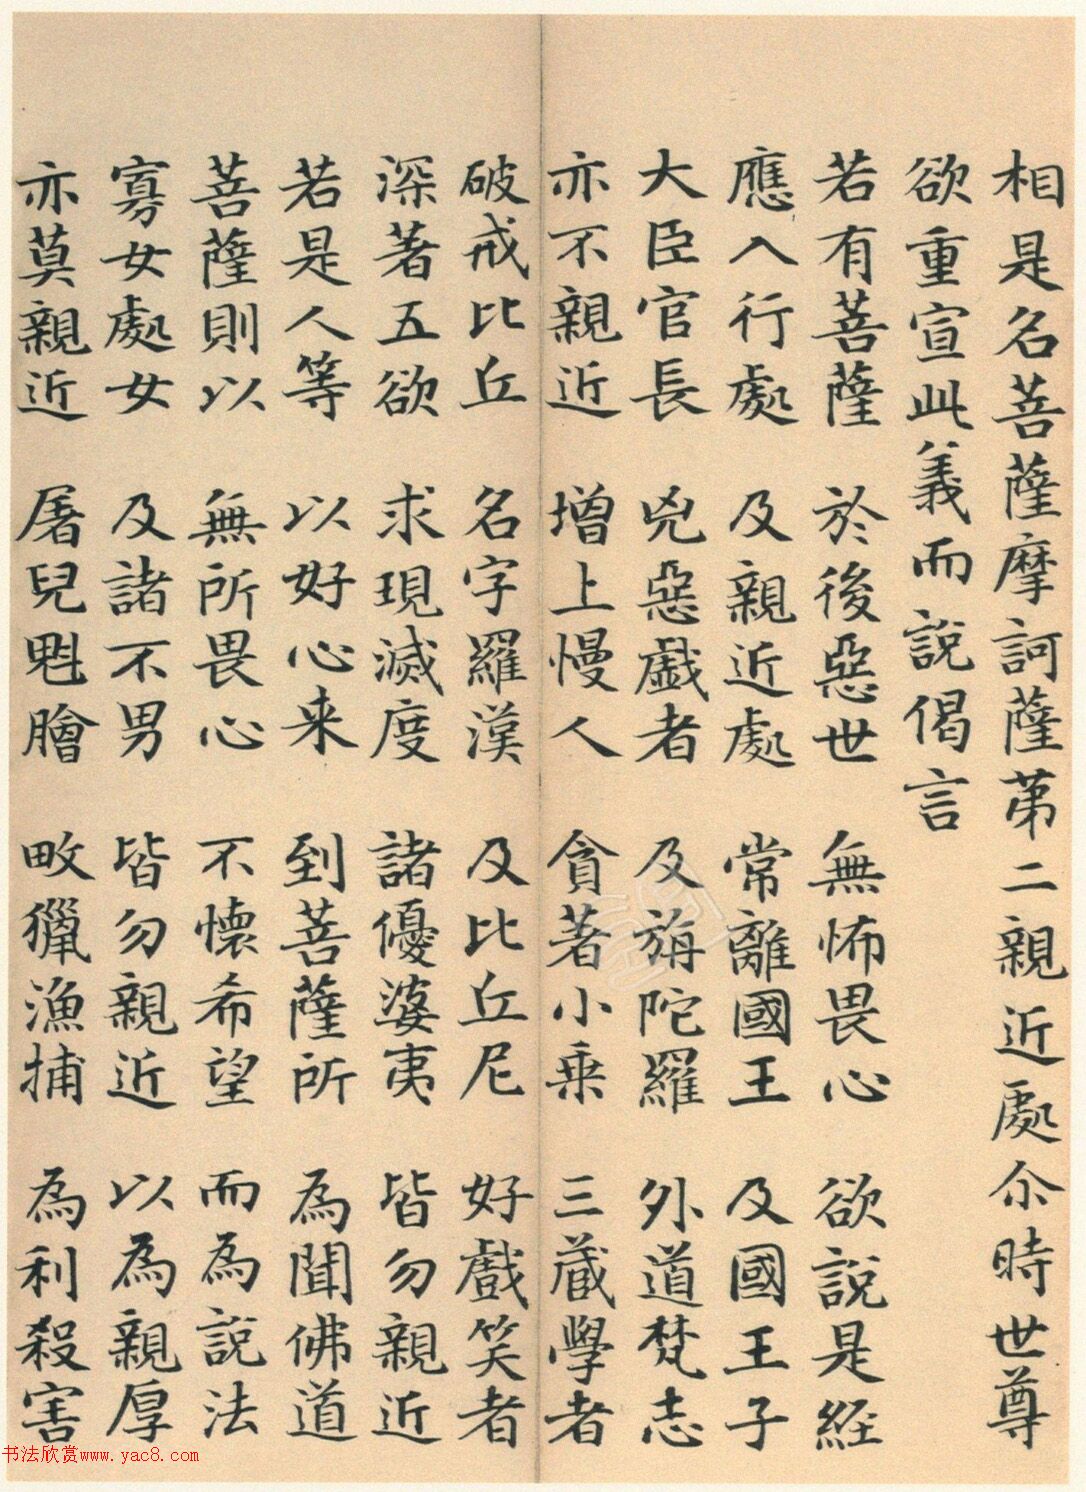 相是名菩薩摩訶薩第二親近處尒時世尊
欲重宣此義而說偈言
若有菩薩 於後惡世 無怖畏心 欲說是経
應入行處 及親近處 常離國王 及國王子
大臣官長 兇惡戲者 及旃陀羅 外道梵志
亦不親近 增上慢人 貪著小乗 三蔵學者
破戒比丘 名字羅漢 及比丘尼 好戲笑者
深著五欲 求現滅度 諸優婆夷 皆勿親近
若是人等 以好心来 到菩薩所 為聞佛道
菩薩則以 無所畏心 不懷希望 而為說法
寡女處女 及諸不男 皆勿親近 以為親厚
亦莫親近 屠兒魁膾 畋獵漁捕 為利殺害
书法欣赏www.yac8.com